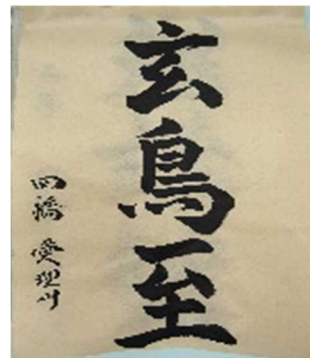 玄鳥至
四橋 愛理